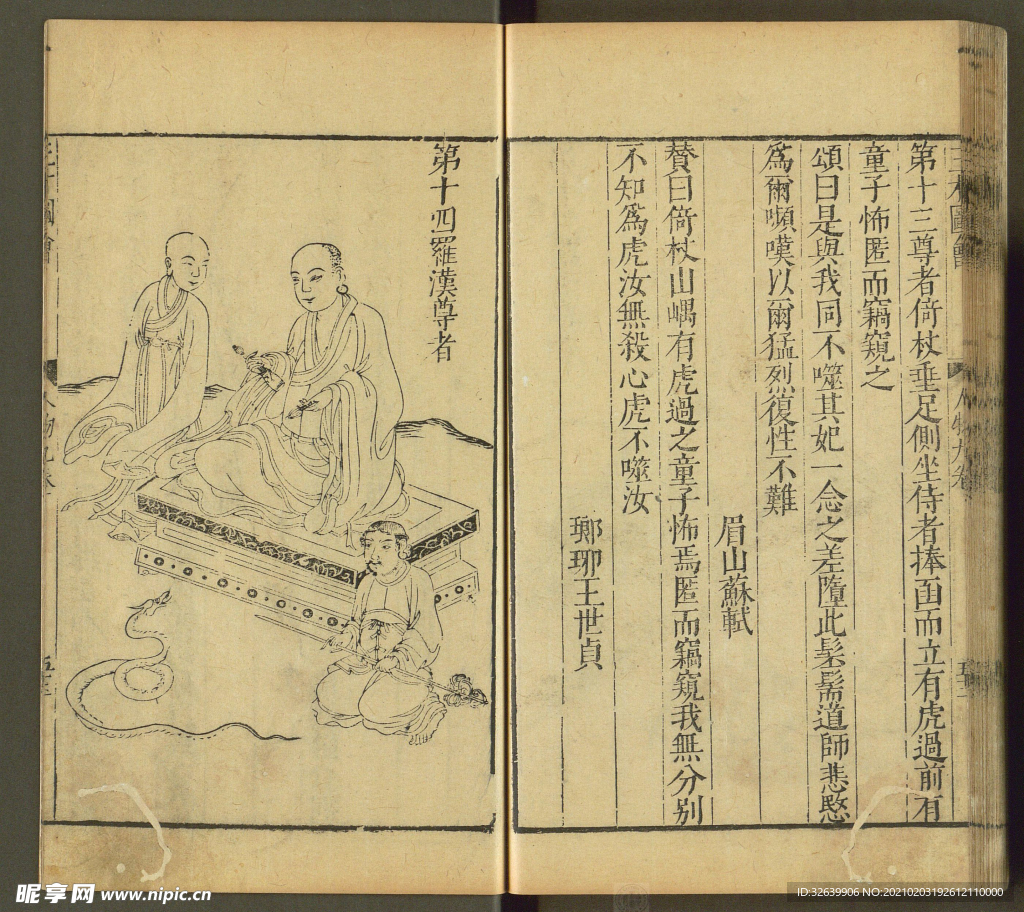 三才圖會
人物九卷
第十三尊者倚杖垂足側坐侍者捧函而立有虎過前有
童子怖匿而竊窺之
頌曰是與我同不噬其妃一念之差墮此髬髵道師悲愍
爲爾嚬嘆以爾猛烈復性不難
眉山蘇軾
贊曰倚杖山嵎有虎過之童子怖焉匿而竊窺我無分别
不知爲虎汝無殺心虎不噬汝
瑯琊王世貞
第十四羅漢尊者
昵享网 www.nipic.cn
ID:32639906 NO:20210203192612110000